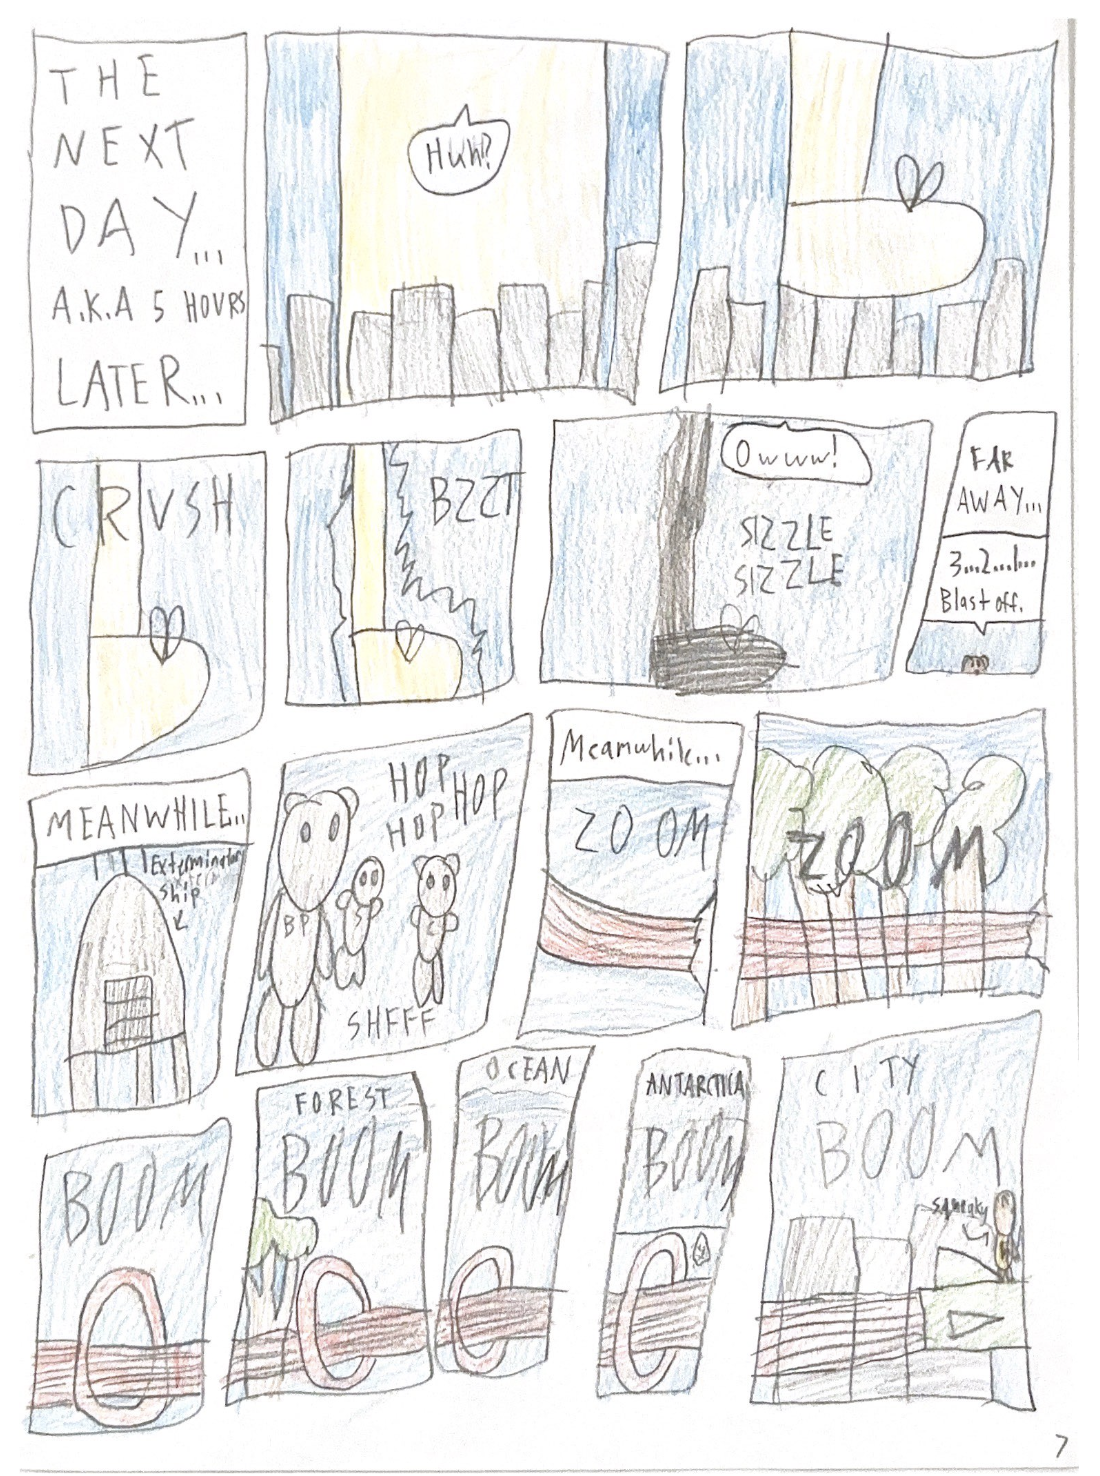 THE
NEXT
DAY...
A.K.A 5 HOURS
LATER...
Huh!?
CRUSH
BZZT
Owww!
SIZZLE
SIZZLE
FAR
AWAY...
3...2...1...
Blast off.
MEANWHILE...
Exterminator
ship
HOP
HOP
HOP
BP
S
C
SHFFF
Meanwhile...
ZOOM
ZOOM
BOOM
FOREST
BOOM
OCEAN
BOOM
ANTARCTICA
BOOM
CITY
BOOM
squeaky
7